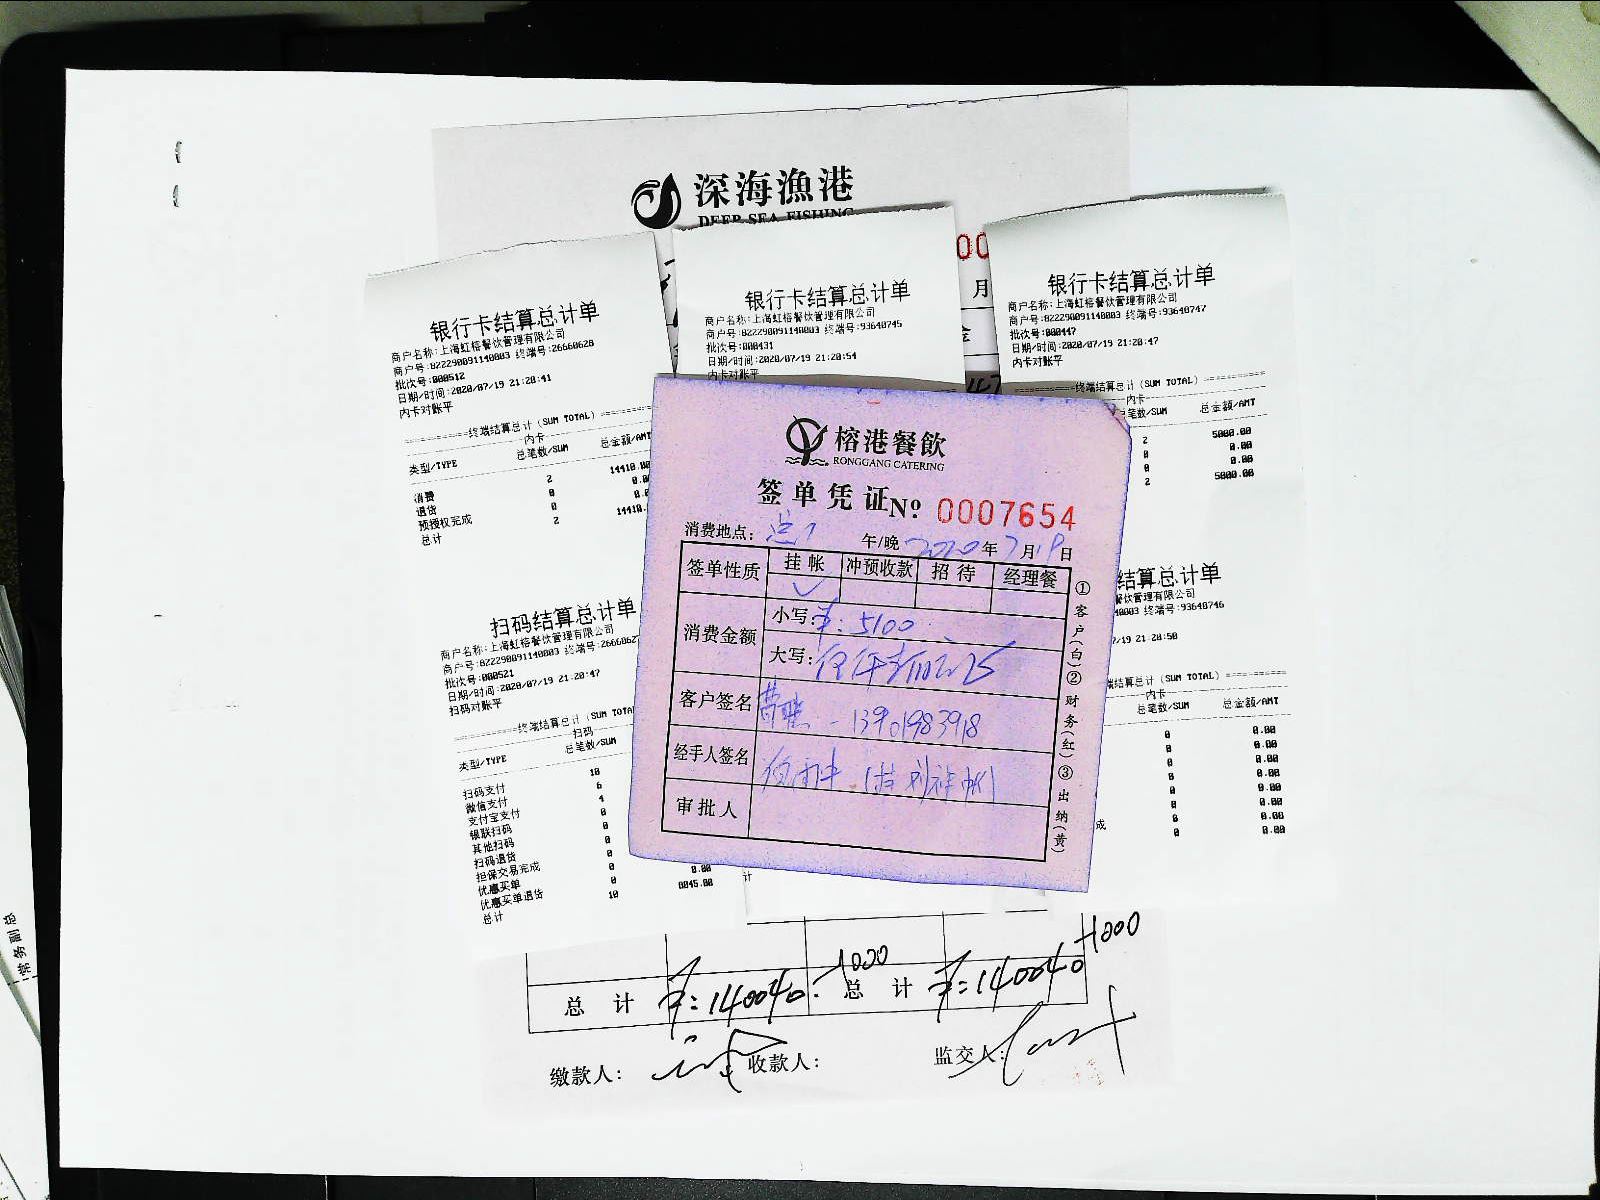 深海漁港
DEEP SEA FISHING
00
月
银行卡结算总计单
商户名称:上海虹榕餐饮管理有限公司
商户号:822290091140003 终端号:26660628
批次号:000512
日期/时间:2020/07/19 21:20:41
内卡对账平
==========终端结算总计(SUM TOTAL)==========
内卡
类型/TYPE 总笔数/SUM 总金额/AMT
消费 2 14410.00
退货 0 0.0
预授权完成 0 0.0
总计 2 14410.
银行卡结算总计单
商户名称:上海虹榕餐饮管理有限公司
商户号:822290091140003 终端号:93640745
批次号:000431
日期/时间:2020/07/19 21:20:54
内卡对账平
银行卡结算总计单
商户名称:上海虹榕餐饮管理有限公司
商户号:822290091140003 终端号:93640747
批次号:000447
日期/时间:2020/07/19 21:20:47
内卡对账平
终端结算总计(SUM TOTAL)==========
内卡
总笔数/SUM 总金额/AMT
2 5000.00
0 0.00
0 0.00
2 5000.00
扫码结算总计单
商户名称:上海虹榕餐饮管理有限公司
商户号:822290091140003 终端号:2666062
批次号:000521
日期/时间:2020/07/19 21:20:47
扫码对账平
==========终端结算总计(SUM TOTA
扫码
类型/TYPE 总笔数/SUM
扫码支付 10
微信支付 6
支付宝支付 4
银联扫码 0
其他扫码 0
扫码退货 0
担保交易完成 0
优惠买单 0 0.00
优惠买单退货 0
总计 10 8845.00
榕港餐飲
RONGGANG CATERING
签单凭证 No 0007654
消费地点: 午/晚 2020年7月19日
签单性质 挂帐 冲预收款 招待 经理餐
✓
消费金额 小写: ¥: 5100
大写:
客户签名 13901983918
经手人签名
审批人
①客户(白)②财务(红)③出纳(黄)
结算总计单
餐饮管理有限公司
40003 终端号:93640746
/19 21:20:50
端结算总计(SUM TOTAL)==========
内卡
总笔数/SUM 总金额/AMT
0 0.00
0 0.00
0 0.00
0 0.00
0 0.00
0 0.00
成 0 0.00
0 0.00
计
-1000 +1000
总计 ¥:140040. 总计 ¥:140040
缴款人: 收款人: 监交人:
常务副总